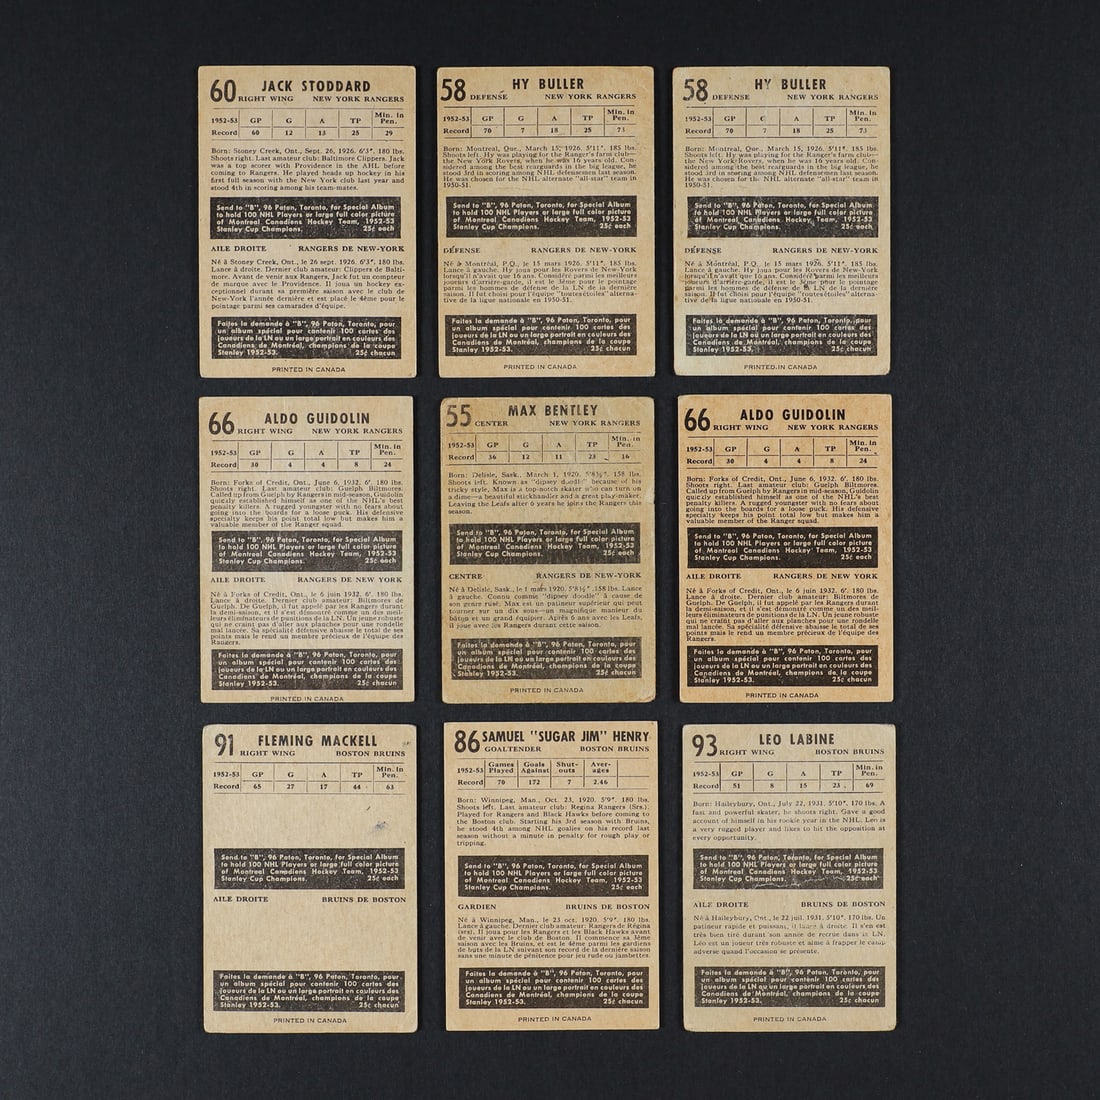 60 JACK STODDARD
RIGHT WING NEW YORK RANGERS
1952-53 GP G A TP Min. in Pen.
Record 60 12 13 25 29
Born: Stoney Creek, Ont., Sept. 26, 1926. 6'3". 180 lbs.
Shoots right. Last amateur club: Baltimore Clippers. Jack
was a top scorer with Providence in the AHL before
coming to Rangers. He played heads up hockey in his
first full season with the New York club last year and
stood 4th in scoring among his team-mates.
Send to "B", 96 Paton, Toronto, for Special Album
to hold 100 NHL Players or large full color picture
of Montreal Canadiens Hockey Team, 1952-53
Stanley Cup Champions. 25¢ each
AILE DROITE RANGERS DE NEW-YORK
Né à Stoney Creek, Ont., le 26 sept. 1926. 6'3". 180 lbs.
Lance à droite. Dernier club amateur: Clippers de Balti-
more. Avant de venir aux Rangers, Jack fut un compteur
de marque avec le Providence. Il joua un hockey ex-
ceptionnel durant sa première saison avec le club de
New-York l'année dernière et est placé le 4ème pour le
pointage parmi ses camarades d'équipe.
Faites la demande à "B", 96 Paton, Toronto, pour
un album spécial pour contenir 100 cartes des
joueurs de la LN ou un large portrait en couleurs des
Canadiens de Montréal, champions de la coupe
Stanley 1952-53. 25¢ chacun
PRINTED IN CANADA
58 HY BULLER
DEFENSE NEW YORK RANGERS
1952-53 GP G A TP Min. in Pen.
Record 70 7 18 25 73
Born: Montreal, Que., March 15, 1926. 5'11". 185 lbs.
Shoots left. Hy was playing for the Ranger's farm club—
the New York Rovers, when he was 16 years old. Con-
sidered among the best rearguards in the big league, he
stood 3rd in scoring among NHL defensemen last season.
He was chosen for the NHL alternate "all-star" team in
1950-51.
Send to "B", 96 Paton, Toronto, for Special Album
to hold 100 NHL Players or large full color picture
of Montreal Canadiens Hockey Team, 1952-53
Stanley Cup Champions. 25¢ each
DÉFENSE RANGERS DE NEW-YORK
Né à Montréal, P.Q., le 15 mars 1926. 5'11". 185 lbs.
Lance à gauche. Hy joua pour les Rovers de New-York
lorsqu'il n'avait que 16 ans. Considéré parmi les meilleurs
joueurs d'arrière-garde, il est le 3ème pour le pointage
parmi les hommes de défense de la LN de la dernière
saison. Il fut choisi pour l'équipe "toutes étoiles" alterna-
tive de la ligue nationale en 1950-51.
Faites la demande à "B", 96 Paton, Toronto, pour
un album spécial pour contenir 100 cartes des
joueurs de la LN ou un large portrait en couleurs des
Canadiens de Montréal, champions de la coupe
Stanley 1952-53. 25¢ chacun
PRINTED IN CANADA
58 HY BULLER
DEFENSE NEW YORK RANGERS
1952-53 GP A TP Min. in Pen.
Record 70 7 18 25 73
Born: Montreal, Que., March 15, 1926. 5'11". 185 lbs.
Shoots left. Hy was playing for the Ranger's farm club—
the New York Rovers, when he was 16 years old. Con-
sidered among the best rearguards in the big league, he
stood 3rd in scoring among NHL defensemen last season.
He was chosen for the NHL alternate "all-star" team in
1950-51.
Send to "B", 96 Paton, Toronto, for Special Album
to hold 100 NHL Players or large full color picture
of Montreal Canadiens Hockey Team, 1952-53
Stanley Cup Champions. 25¢ each
DÉFENSE RANGERS DE NEW-YORK
Né à Montréal, P.Q., le 15 mars 1926. 5'11". 185 lbs.
Lance à gauche. Hy joua pour les Rovers de New-York
lorsqu'il n'avait que 16 ans. Considéré parmi les meilleurs
joueurs d'arrière-garde, il est le 3ème pour le pointage
parmi les hommes de défense de la LN de la dernière
saison. Il fut choisi pour l'équipe "toutes étoiles" alterna-
tive de la ligue nationale en 1950-51.
Faites la demande à "B", 96 Paton, Toronto, pour
un album spécial pour contenir 100 cartes des
joueurs de la LN ou un large portrait en couleurs des
Canadiens de Montréal, champions de la coupe
Stanley 1952-53. 25¢ chacun
PRINTED IN CANADA
66 ALDO GUIDOLIN
RIGHT WING NEW YORK RANGERS
1952-53 GP G A TP Min. in Pen.
Record 30 4 4 8 24
Born: Forks of Credit, Ont., June 6, 1932. 6'. 180 lbs.
Shoots right. Last amateur club: Guelph Biltmores.
Called up from Guelph by Rangers in mid-season, Guidolin
quickly established himself as one of the NHL's best
penalty killers. A rugged youngster with no fears about
going into the boards for a loose puck. His defensive
specialty keeps his point total low but makes him a
valuable member of the Ranger squad.
Send to "B", 96 Paton, Toronto, for Special Album
to hold 100 NHL Players or large full color picture
of Montreal Canadiens Hockey Team, 1952-53
Stanley Cup Champions. 25¢ each
AILE DROITE RANGERS DE NEW YORK
Né à Forks of Credit, Ont., le 6 juin 1932. 6'. 180 lbs.
Lance à droite. Dernier club amateur: Biltmores de
Guelph. De Guelph, il fut appelé par les Rangers durant
la demi-saison, et s'est démontré comme un des meil-
leurs éliminateurs de punitions de la LN. Un jeune robuste
qui ne craint pas d'aller aux planches pour une rondelle
mal lancée. Sa spécialité défensive abaisse le total de ses
points mais le rend un membre précieux de l'équipe des
Rangers.
Faites la demande à "B", 96 Paton, Toronto, pour
un album spécial pour contenir 100 cartes des
joueurs de la LN ou un large portrait en couleurs des
Canadiens de Montréal, champions de la coupe
Stanley 1952-53. 25¢ chacun
PRINTED IN CANADA
55 MAX BENTLEY
CENTER NEW YORK RANGERS
1952-53 GP G A TP Min. in Pen.
Record 36 12 11 23 16
Born: Delisle, Sask., March 1, 1920. 5'8½". 158 lbs.
Shoots left. Known as "dipsey doodle" because of his
tricky style, Max is a top-notch skater who can turn on
a dime—a beautiful stickhandler and a great play-maker.
Leaving the Leafs after 6 years he joins the Rangers this
season.
Send to "B", 96 Paton, Toronto, for Special Album
to hold 100 NHL Players or large full color picture
of Montreal Canadiens Hockey Team, 1952-53
Stanley Cup Champions. 25¢ each
CENTRE RANGERS DE NEW-YORK
Né à Delisle, Sask., le 1 mars 1920. 5'8½". 158 lbs. Lance
à gauche. Connu comme "dipsey doodle" à cause de
son genre rusé. Max est un patineur supérieur qui peut
tourner sur un dix sous—un magnifique manieur du
bâton et un grand équipier. Après 6 ans avec les Leafs,
il joue avec les Rangers durant cette saison.
Faites la demande à "B", 96 Paton, Toronto, pour
un album spécial pour contenir 100 cartes des
joueurs de la LN ou un large portrait en couleurs des
Canadiens de Montréal, champions de la coupe
Stanley 1952-53. 25¢ chacun
PRINTED IN CANADA
66 ALDO GUIDOLIN
RIGHT WING NEW YORK RANGERS
1952-53 GP G A TP Min. in Pen.
Record 30 4 4 8 24
Born: Forks of Credit, Ont., June 6, 1932. 6'. 180 lbs.
Shoots right. Last amateur club: Guelph Biltmores.
Called up from Guelph by Rangers in mid-season, Guidolin
quickly established himself as one of the NHL's best
penalty killers. A rugged youngster with no fears about
going into the boards for a loose puck. His defensive
specialty keeps his point total low but makes him a
valuable member of the Ranger squad.
Send to "B", 96 Paton, Toronto, for Special Album
to hold 100 NHL Players or large full color picture
of Montreal Canadiens Hockey Team, 1952-53
Stanley Cup Champions. 25¢ each
AILE DROITE RANGERS DE NEW YORK
Né à Forks of Credit, Ont., le 6 juin 1932. 6'. 180 lbs.
Lance à droite. Dernier club amateur: Biltmores de
Guelph. De Guelph, il fut appelé par les Rangers durant
la demi-saison, et s'est démontré comme un des meil-
leurs éliminateurs de punitions de la LN. Un jeune robuste
qui ne craint pas d'aller aux planches pour une rondelle
mal lancée. Sa spécialité défensive abaisse le total de ses
points mais le rend un membre précieux de l'équipe des
Rangers.
Faites la demande à "B", 96 Paton, Toronto, pour
un album spécial pour contenir 100 cartes des
joueurs de la LN ou un large portrait en couleurs des
Canadiens de Montréal, champions de la coupe
Stanley 1952-53. 25¢ chacun
PRINTED IN CANADA
91 FLEMING MACKELL
RIGHT WING BOSTON BRUINS
1952-53 GP G A TP Min. in Pen.
Record 65 27 17 44 63
Send to "B", 96 Paton, Toronto, for Special Album
to hold 100 NHL Players or large full color picture
of Montreal Canadiens Hockey Team, 1952-53
Stanley Cup Champions. 25¢ each
AILE DROITE BRUINS DE BOSTON
Faites la demande à "B", 96 Paton, Toronto, pour
un album spécial pour contenir 100 cartes des
joueurs de la LN ou un large portrait en couleurs des
Canadiens de Montréal, champions de la coupe
Stanley 1952-53. 25¢ chacun
PRINTED IN CANADA
86 SAMUEL "SUGAR JIM" HENRY
GOALTENDER BOSTON BRUINS
1952-53 Games Played Goals Against Shut-outs Aver-ages
Record 70 172 7 2.46
Born: Winnipeg, Man., Oct. 23, 1920. 5'9". 180 lbs.
Shoots left. Last amateur club: Regina Rangers (Srs.).
Played for Rangers and Black Hawks before coming to
the Boston club. Starting his 3rd season with Bruins,
he stood 4th among NHL goalies on his record last
season without a minute in penalty for rough play or
tripping.
Send to "B", 96 Paton, Toronto, for Special Album
to hold 100 NHL Players or large full color picture
of Montreal Canadiens Hockey Team, 1952-53
Stanley Cup Champions. 25¢ each
GARDIEN BRUINS DE BOSTON
Né à Winnipeg, Man., le 23 oct. 1920. 5'9". 180 lbs.
Lance à gauche. Dernier club amateur: Rangers de Régina
(srs). Il joua pour les Rangers et les Black Hawks avant
de venir avec le club de Boston. Il commence sa 3ème
saison avec les Bruins, et est le 4ème parmi les gardiens
de buts de la LN suivant son record de la dernière saison
sans une minute de pénitence pour jeu rude ou jambettes.
Faites la demande à "B", 96 Paton, Toronto, pour
un album spécial pour contenir 100 cartes des
joueurs de la LN ou un large portrait en couleurs des
Canadiens de Montréal, champions de la coupe
Stanley 1952-53. 25¢ chacun
PRINTED IN CANADA
93 LEO LABINE
RIGHT WING BOSTON BRUINS
1952-53 GP G A TP Min. in Pen.
Record 51 8 15 23 69
Born: Haileybury, Ont., July 22, 1931. 5'10". 170 lbs. A
fast and powerful skater, he shoots right. Gave a good
account of himself in his rookie year in the NHL. Leo is
a very rugged player and likes to hit the opposition at
every opportunity.
Send to "B", 96 Paton, Toronto, for Special Album
to hold 100 NHL Players or large full color picture
of Montreal Canadiens Hockey Team, 1952-53
Stanley Cup Champions. 25¢ each
AILE DROITE BRUINS DE BOSTON
Né à Haileybury, Ont., le 22 juil. 1931. 5'10". 170 lbs. Un
patineur rapide et puissant, il lance à droite. Il s'en est
très bien tiré durant son année de recrue dans la LN.
Léo est un joueur très robuste et aime à frapper le camp
adverse quand l'occasion se présente.
Faites la demande à "B", 96 Paton, Toronto, pour
un album spécial pour contenir 100 cartes des
joueurs de la LN ou un large portrait en couleurs des
Canadiens de Montréal, champions de la coupe
Stanley 1952-53. 25¢ chacun
PRINTED IN CANADA